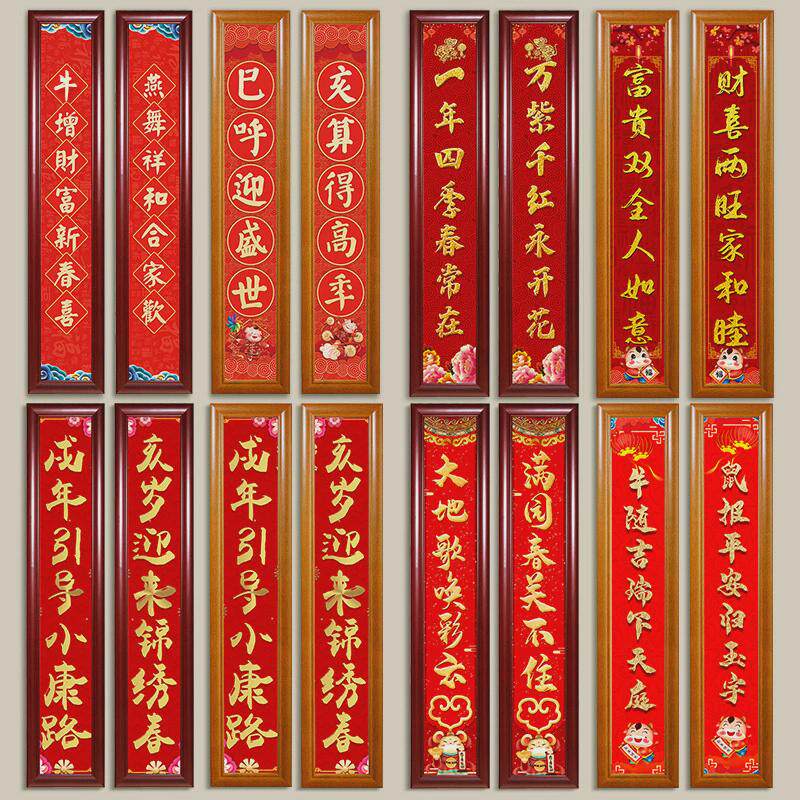 牛增財富新春喜
燕舞祥和合家歡
巳呼迎盛世
亥算得高年
一年四季春常在
万紫千红永开花
富貴双全人如意
财喜两旺家和睦
戌年引导小康路
亥岁迎来锦绣春
戌年引导小康路
亥岁迎来锦绣春
大地歌唤彩云
满园春关不住
牛随吉瑞下天庭
鼠报平安归玉宇